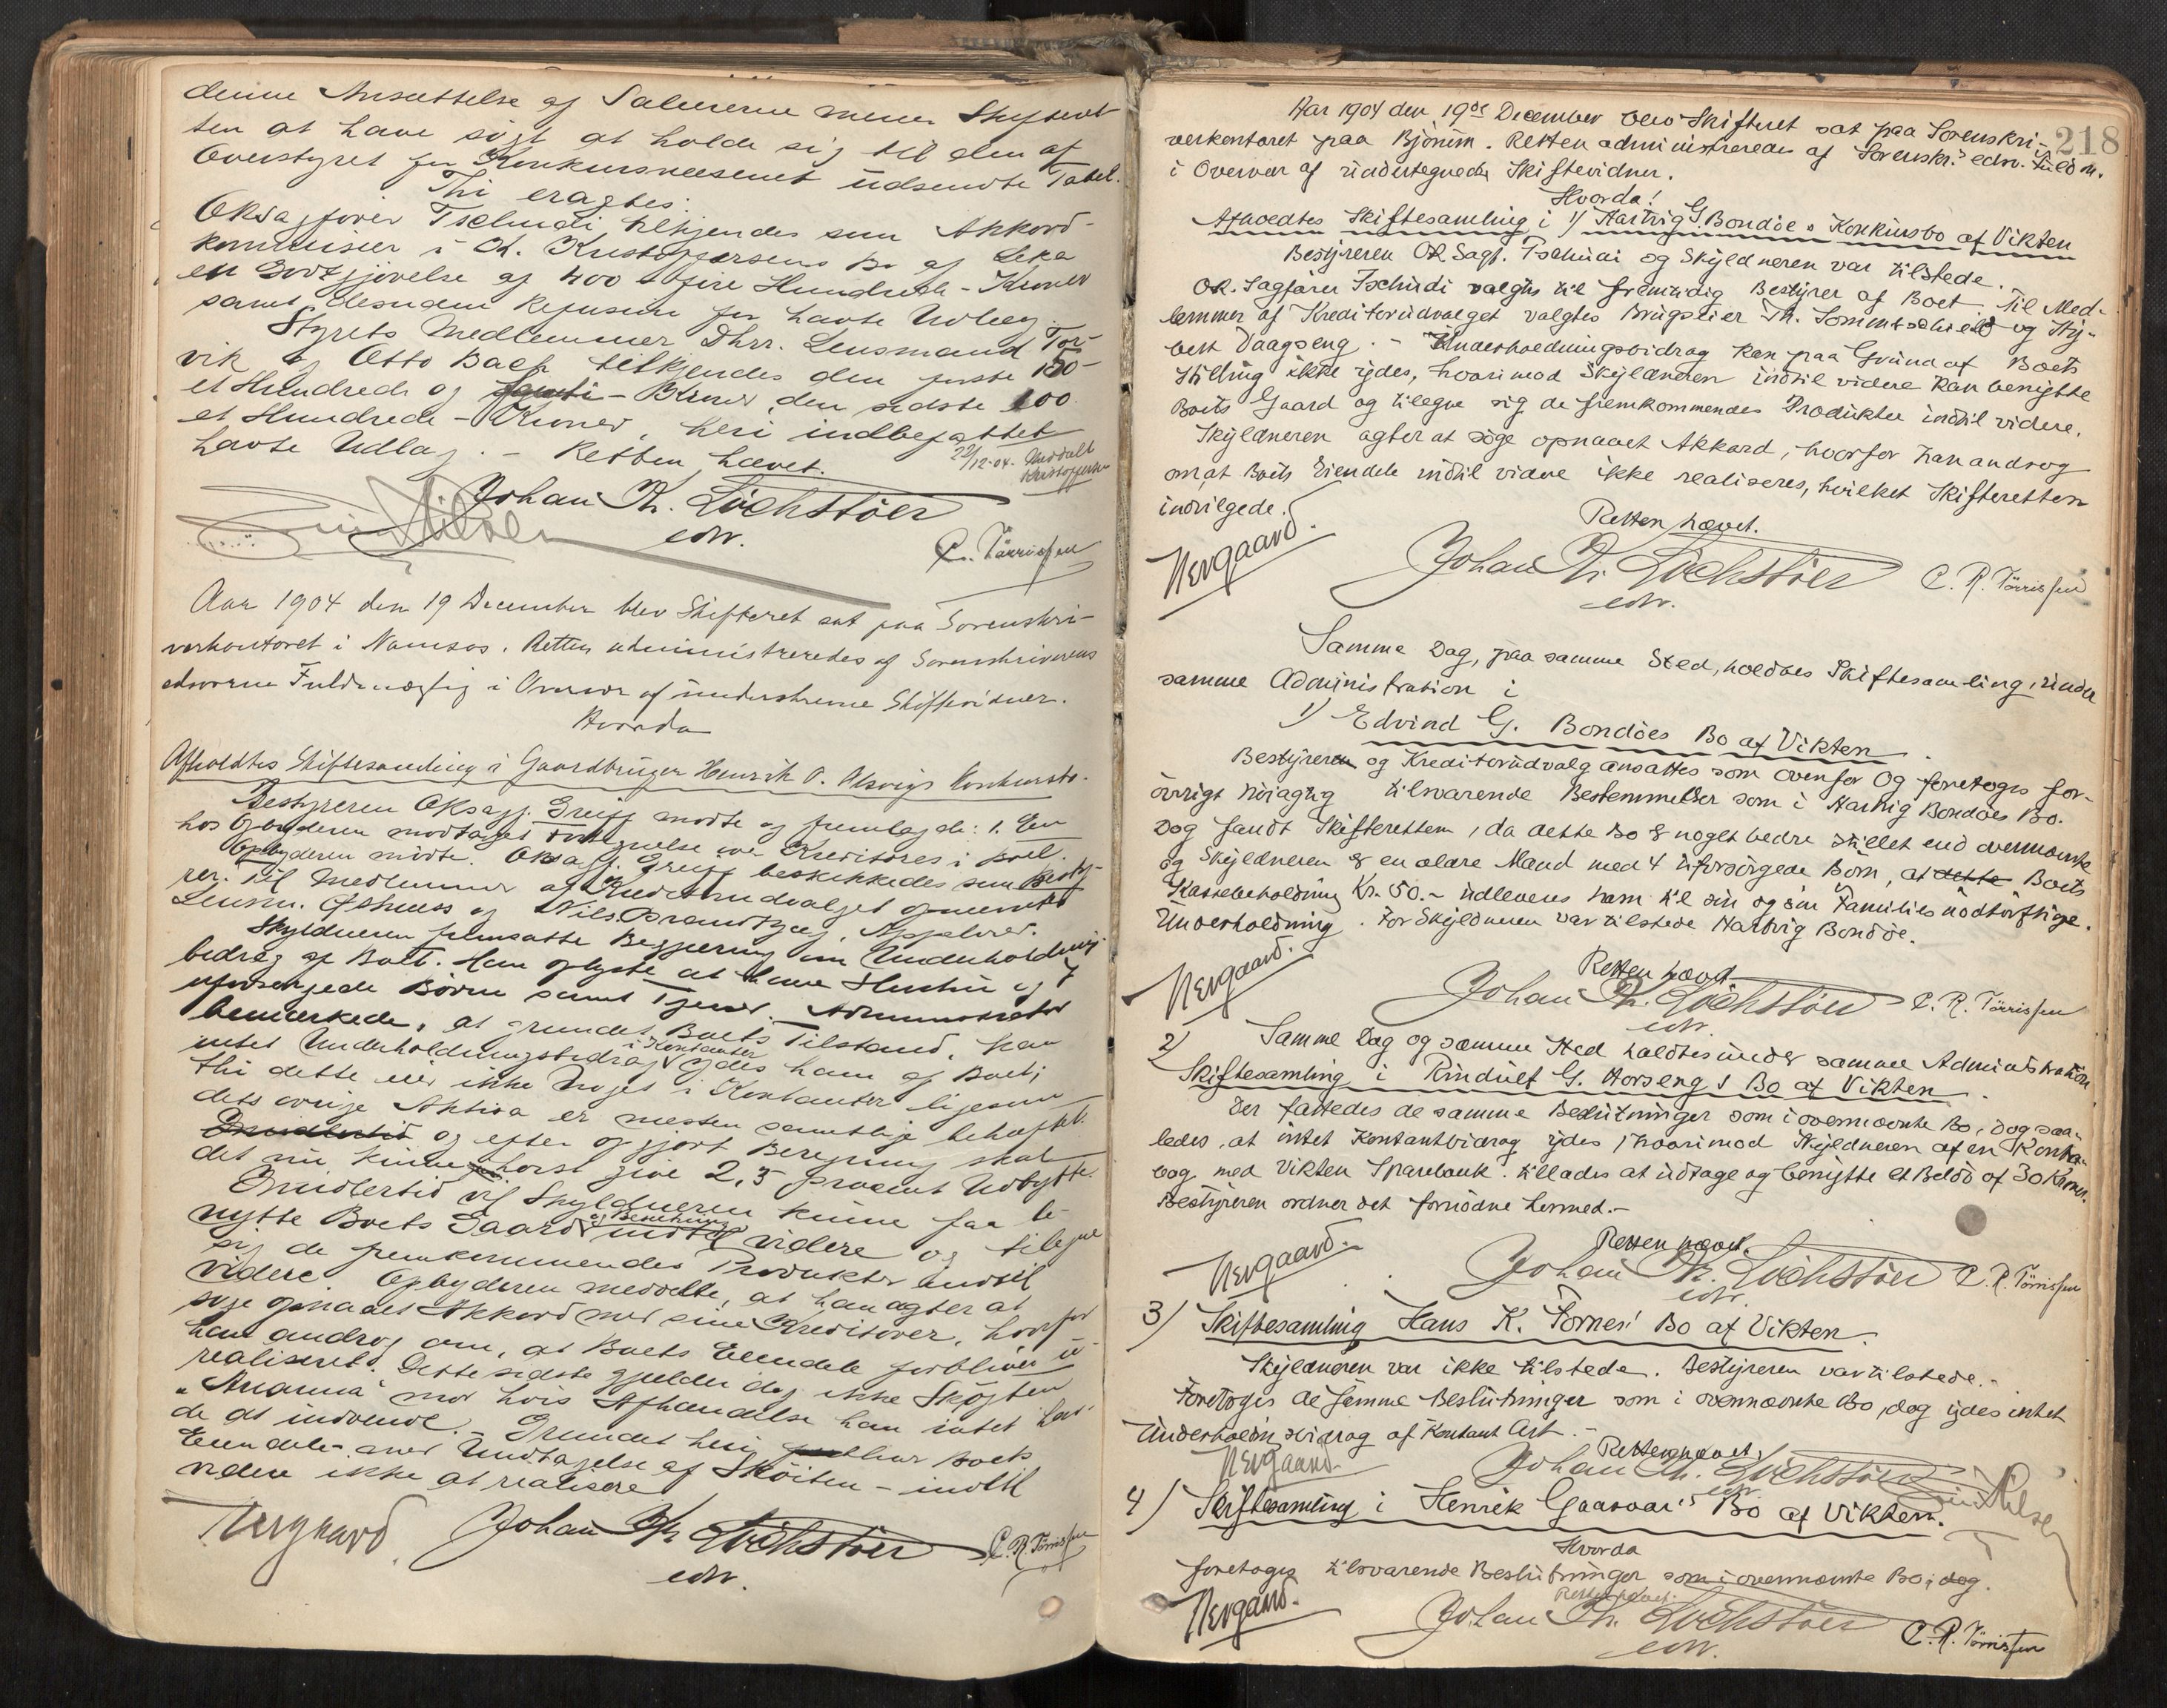 denne Ansættelse af Salærerne mener Skifteret-
ten at have søgt at holde sig til den af
Overstyret for Konkursvæsenet udsendte Tabel.
Thi eragtes:
OKsagfører Tschudi tilkjendes som Akkord-
kommissær i O. Kristoffersens Bo af Leka
en Godtgjørelse af 400 - fire Hundrede - Kroner
samt desuden Refusion for havte Udlæg.
Styrets Medlemmer Dhrr. Lensmand Tor-
vik og Otto Bach tilkjendes den første 150 -
et Hundrede og femti - Kroner, den sidste 100
et Hundrede - Kroner, heri indbefattet
havte Udlæg. - Retten hævet.
22/12-04. Meddelt
Kristoffersen
Johan Th. Lochstöer
edsv.
C. R. Tørrissen
Aar 1904 den 19 December blev Skifteret sat paa Sorenskri-
verkontoret i Namsos. Retten administreredes af Sorenskriverens
edsvorne Fuldmægtig i Overvær af underskrevne Skiftevidner.
Hvorda
Afholdtes Skiftesamling i Gaardbruger Henrik O. Alsvigs Konkursbo.
Bestyreren OKsagf. Greiff mødte og fremlagde: 1. En
hos Opbyderen modtaget Fortegnelse over Kreditores i Boet.
Opbyderen mødte. OKsagf. Greiff beskikkedes som Besty-
rer. Til Medlemmer af Kreditorudvalget opnævntes
Lensm. og Nils Brandtzæg, Appelvær.
Skyldneren fremsatte Begjæring om Underholdnings-
bedrag af Boet. Han oplyste at have Hustru og 7
uforsørgede Børn samt Tjener. Administrator
bemærkede, at grundet Boets Tilstand, kan
intet Underholdningsbedrag i Kontanter ydes ham af Boet;
thi dette eier ikke Noget i Kontanter ligesom
dets øvrige Aktiva er næsten samtlige behæftet.
Imidlertid og efter opgjort Beregning skal
det nu kunne høist give 2,5 procent Udbytte.
Imidlertid vil Skyldneren kunne faa be-
nytte Boets Gaard og Besetning indtil videre og tilegne
sig de fremkommende Produkter indtil
videre. Opbyderen meddelte, at han agter at
søge opnaaet Akkord med sine Kreditorer, hvorfor
han androg om, at Boets Eiendele forbliver u-
realiseret. Dette sidste gjælder dog ikke Skøjten
"Arianna" mod hvis Afhændelse han intet hav-
de at indvende. - Grundet heri Boets
Eiendele - med Undtagelse af Skøiten - indtil
videre ikke at realisere
Nergaard. Johan Th. Lochstöer C. R. Tørrissen
edsv.
218
Aar 1904 den 19de December blev Skifteret sat paa Sorenskri-
verkontoret paa Bjørum. Retten administreredes af Sorenskr.s edsv. Fuldm.
i Overvær af undertegnede Skiftevidner.
Hvorda!
Afholdtes Skiftesamling i 1) Hartvig G. Bondøe s Konkursbo af Vikten
Bestyreren OK. Sagf. Tschudi og Skyldneren var tilstede.
OK. Sagfører Tschudi valgtes til fremtidig Bestyrer af Boet. Til Med-
lemmer af Kreditorudvalget valgtes Brugseier Th. Sommerschield og Hy-
bert Vaagseng. - Underholdningsbidrag kan paa Grund af Boets
Stilling ikke ydes, hvorimod Skyldneren indtil videre kan benytte
Boets Gaard og tilegne sig de fremkommendes Produkter indtil videre.
Skyldneren agter at søge opnaaet Akkord, hvorfor han androg
om, at Boets Eiendele indtil videre ikke realiseres, hvilket Skifteretten
indvilgede.
Retten hævet.
Nergaard. Johan Th. Lochstöer C. R. Tørrissen
edsv.
Samme Dag, paa samme Sted, holdtes Skiftesamling, under
samme Administration i
1) Edvind G. Bondöes Bo af Vikten.
Bestyreren og Kreditorudvalg ansattes som ovenfor Og foretoges for-
øvrigt nøiagtig tilsvarende Bestemmelser som i Hartvig Bondöes Bo.
Dog fandt Skifteretten, da dette Bo er noget bedre stillet end ovennævnte
og Skyldneren er en ældre Mand med 4 uforsørgede Børn, at dette Boets
Kassebeholdning Kr. 50.- udleveres ham til sin og sin Families nødtørftige
Underholdning. For Skyldneren var tilstede Hartvig Bondøe.
Retten hævet
Nergaard. Johan Th. Lochstöer C. R. Tørrissen
edsv.
2) Samme Dag og samme Sted holdtes under samme Administration
Skiftesamling i Rindulf G. Horsengs Bo af Vikten.
Der fattedes de samme Beslutninger som i ovennævnte Bo, dog saa-
ledes, at intet Kontantbidrag ydes, hvorimod Skyldneren af en Kontra-
bog med Vikten Sparebank tillades at udtage og benytte et Beløb af 30 Kroner.
Bestyreren ordner det fornødne hermed. -
Retten hævet.
Nergaard. Johan Th. Lochstöer C. R. Tørrissen
edsv.
3) Skiftesamling Hans K. Fornes' Bo af Vikten.
Skyldneren var ikke tilstede. Bestyreren var tilstede. -
Foretoges de samme Beslutninger som i ovennævnte Bo, dog ydes intet
Underholdn.sbidrag af Kontant Art. -
Retten hævet
Nergaard. Johan Th. Lochstöer
edsv.
4) Skiftesamling i Henrik Gaasvær's Bo af Vikten.
Hvorda
foretoges tilsvarende Beslutninger som i ovennævnte Bo, dog.
Retten hævet.
Nergaard. Johan Th. Lochstöer C. R. Tørrissen
edsv.